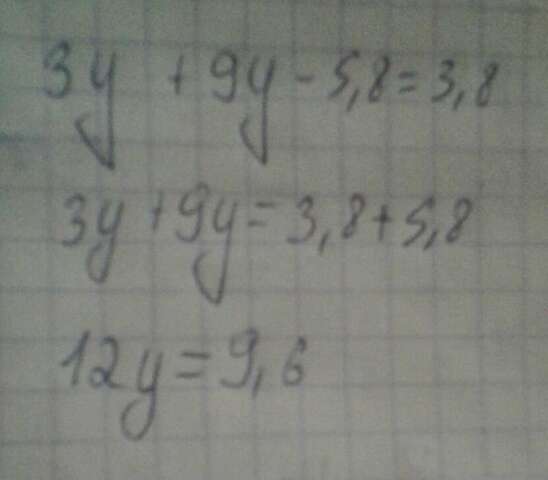 3y + 9y - 5,8 = 3,8
3y + 9y = 3,8 + 5,8
12y = 9,6